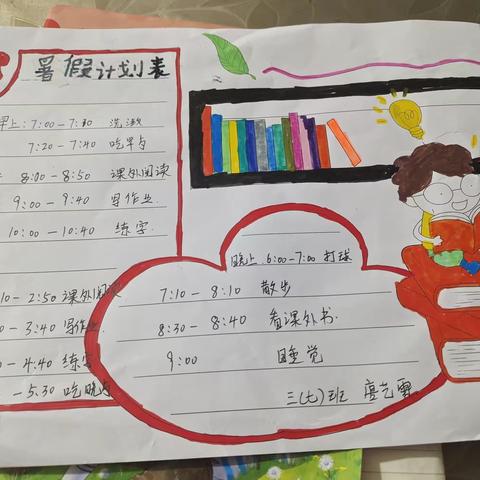 暑假计划表
早上:7:00-7:10 洗漱
7:20-7:40 吃早与
8:00-8:50 课外阅读
9:00-9:40 写作业.
10:00-10:40 练字.
10-2:50 课外阅
-3:40 写作业
-4:40 练字
-5:30 吃晚
晚上:6:00-7:00 打球
7:10-8:10 散步
8:30-8:40 看课外书.
9:00 睡觉
三(七)班 廖艺